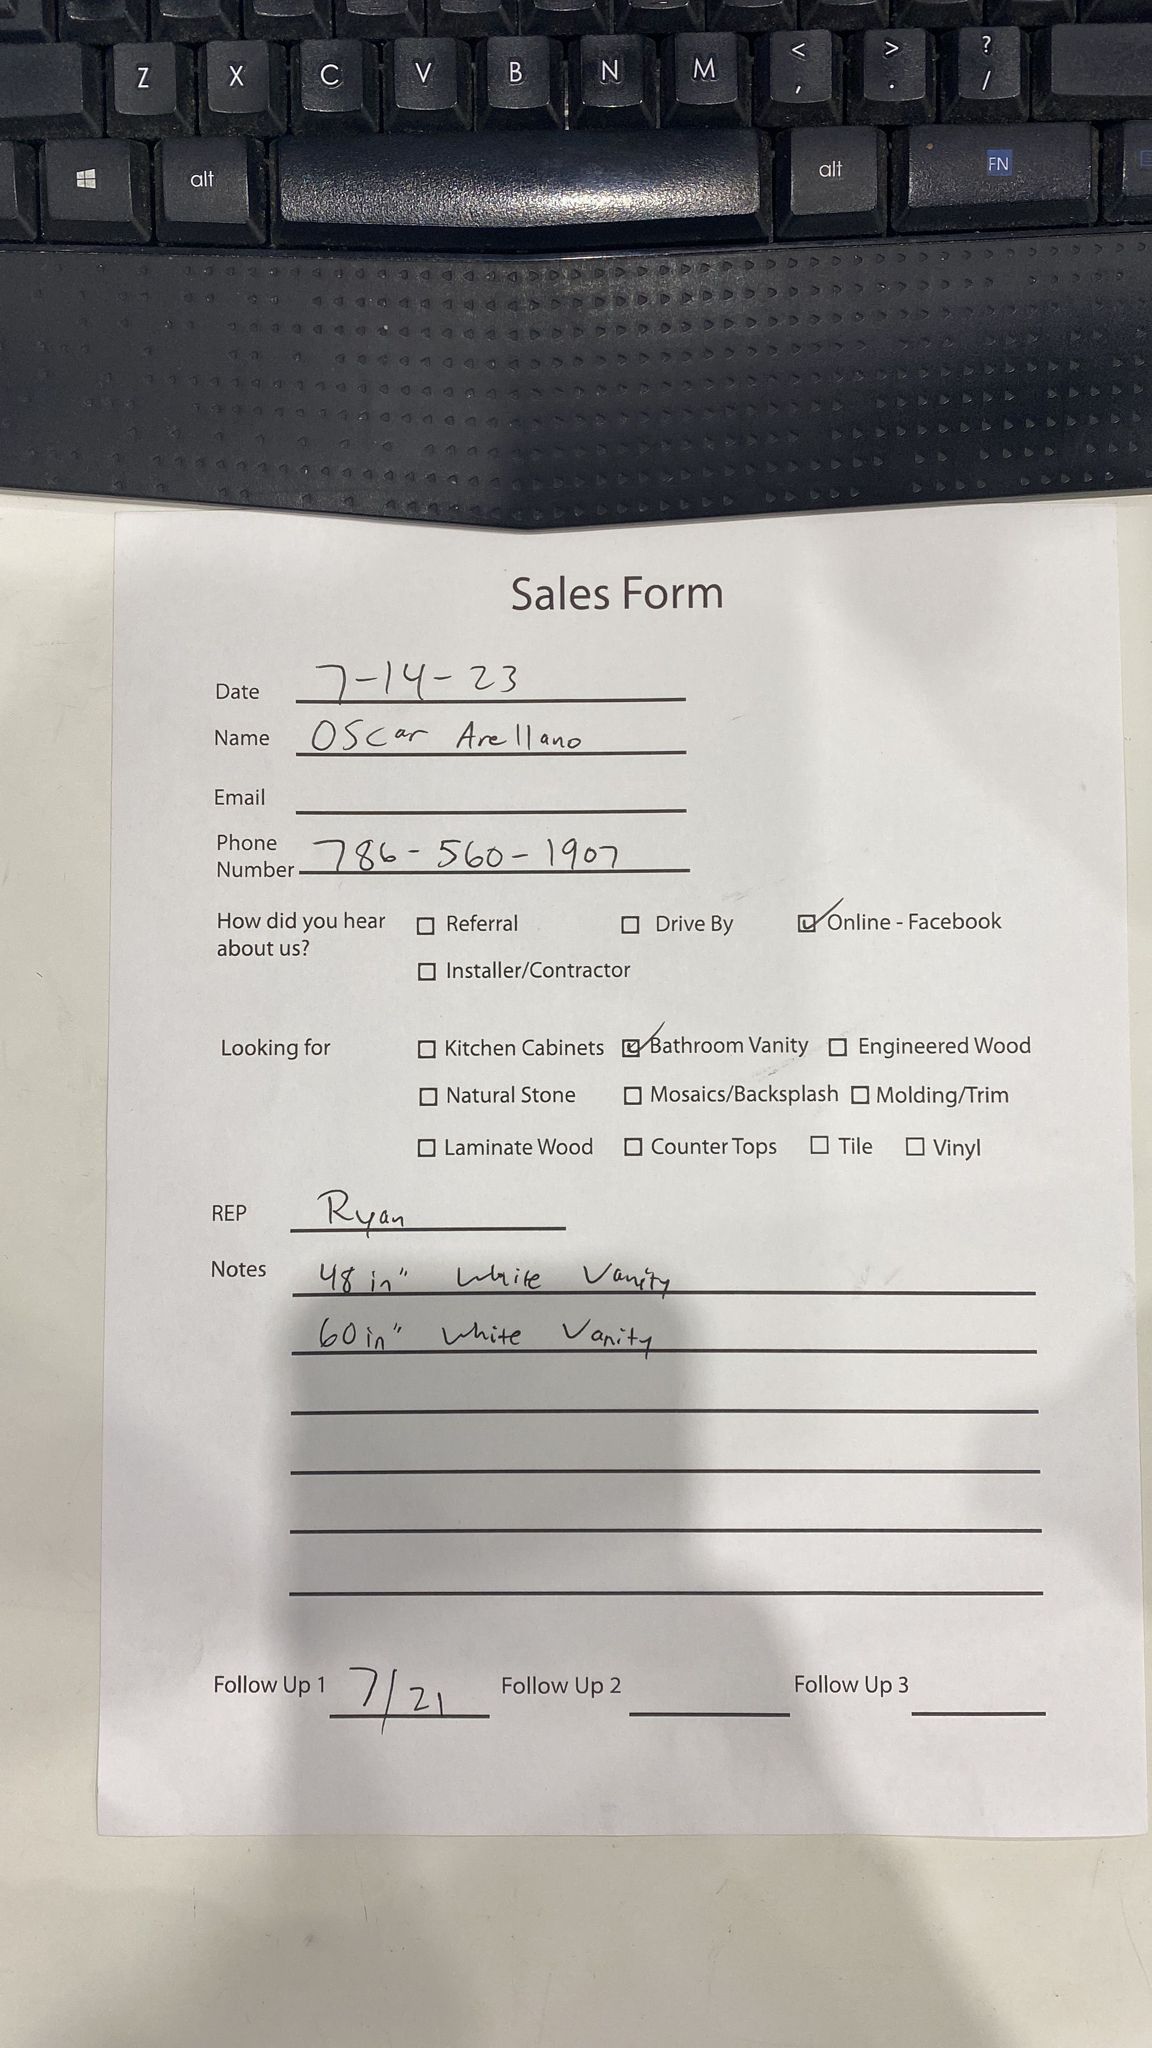 Z X C V B N M < , > . ? /
alt alt FN
Sales Form
Date 7-14-23
Name Oscar Arellano
Email
Phone
Number 786-560-1907
How did you hear
about us?
☐ Referral ☐ Drive By ☑ Online - Facebook
☐ Installer/Contractor
Looking for ☐ Kitchen Cabinets ☑ Bathroom Vanity ☐ Engineered Wood
☐ Natural Stone ☐ Mosaics/Backsplash ☐ Molding/Trim
☐ Laminate Wood ☐ Counter Tops ☐ Tile ☐ Vinyl
REP Ryan
Notes 48 in" White Vanity
60 in" White Vanity
Follow Up 1 7/21 Follow Up 2 Follow Up 3